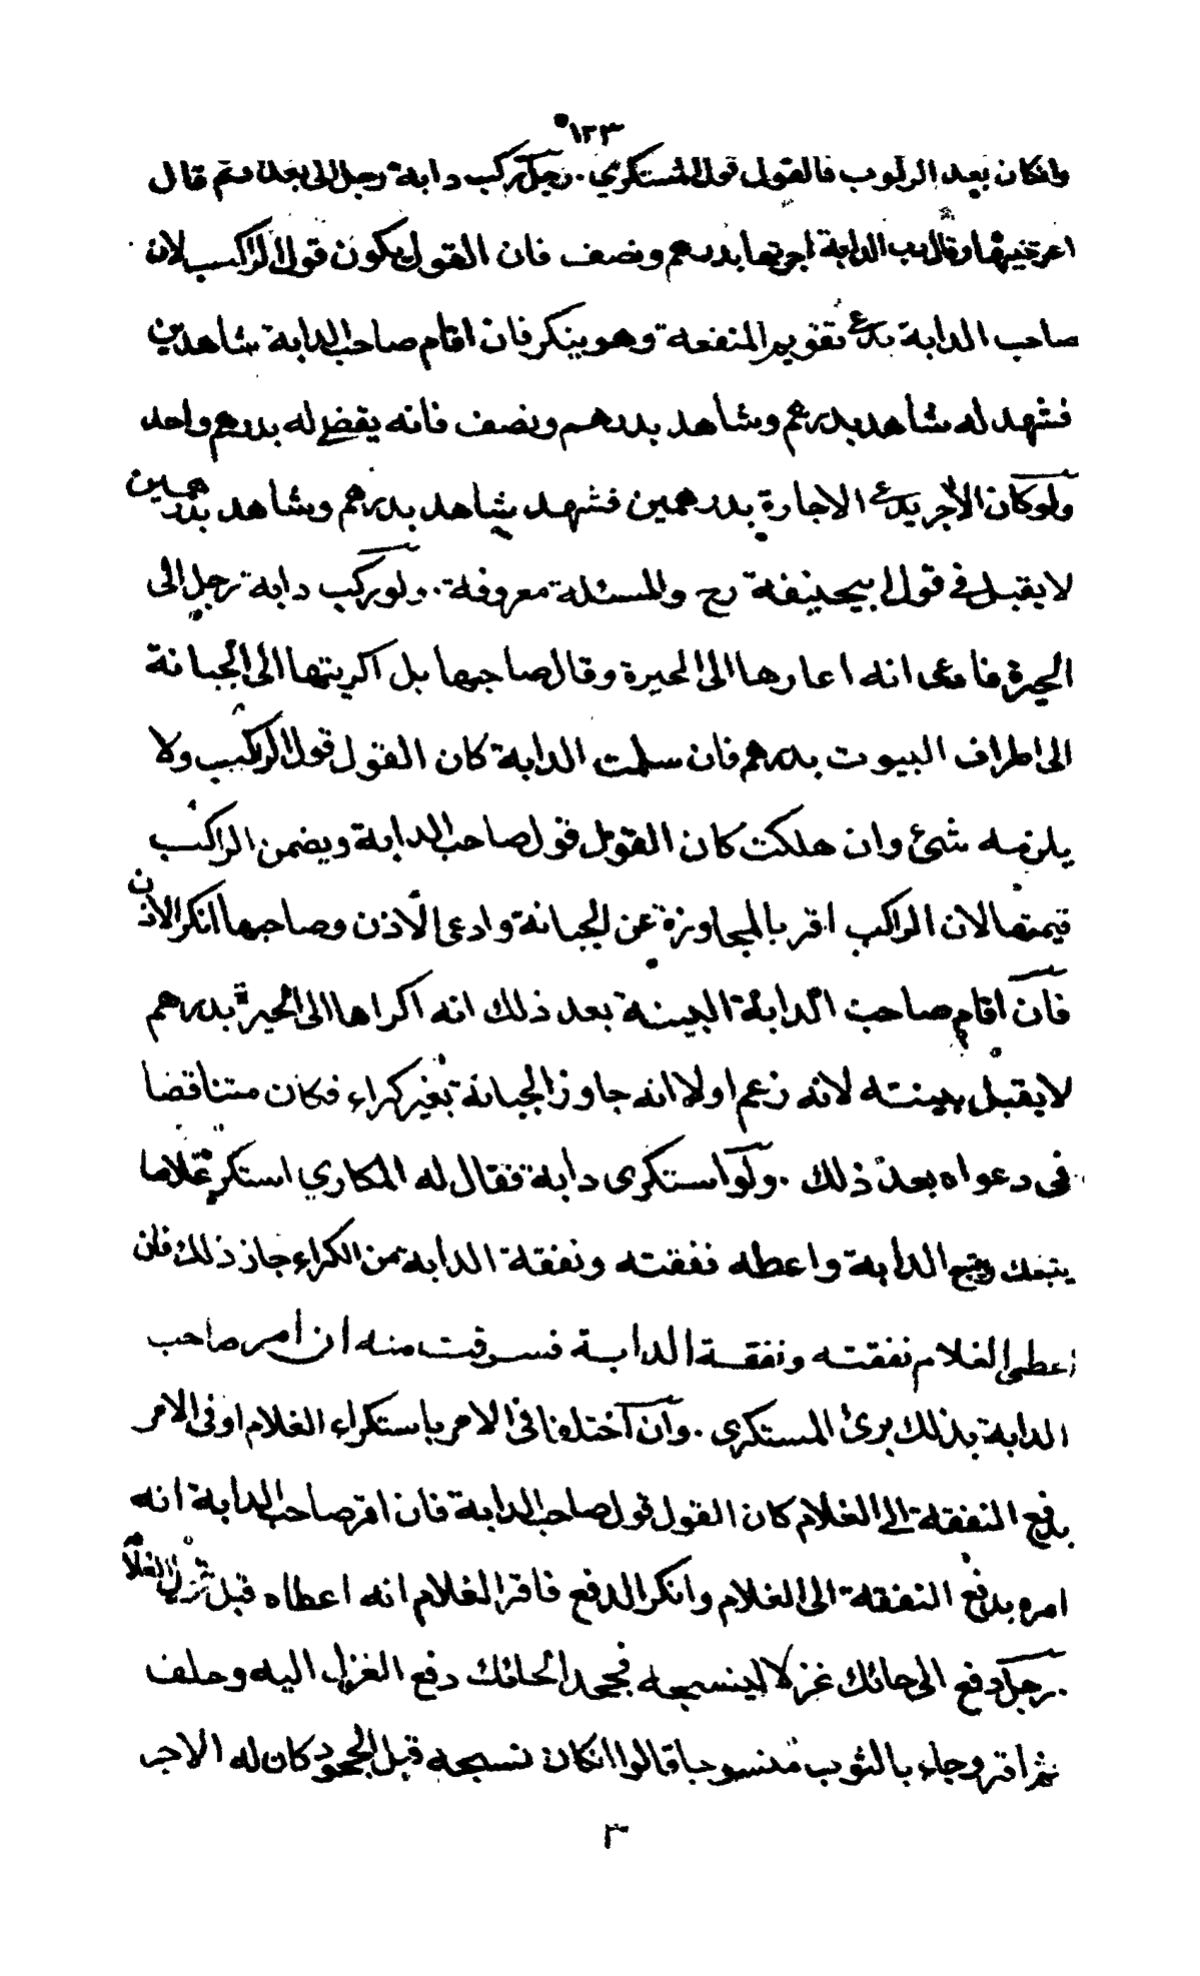 ١٢٣
وانكان بعد الركوب فالقول قول المستكري . رجل ركب دابة رجل الى بغداد ثم قال
اعرتنيها وقال رب الدابة اجرتها بدرهم ونصف فان القول يكون قول الراكب لان
صاحب الدابة يدعي تقويم المنفعة وهو ينكر فان اقام صاحب الدابة شاهدين
فشهد له شاهد بدرهم وشاهد بدرهم ونصف فانه يقضى له بدرهم واحد
ولو كان الآجر يدعي الاجارة بدرهمين فشهد شاهد بدرهم وشاهد بدرهمين
لا يقبل في قول ابيحنيفة رح والمسئلة معروفة . ولو ركب دابة رجل الى
الحيرة فادعى انه اعارها الى الحيرة وقال صاحبها بل اكريتها الى الجبانة
الى اطراف البيوت بدرهم فان سلمت الدابة كان القول قول الراكب ولا
يلزمه شئ وان هلكت كان القول قول صاحب الدابة ويضمن الراكب
قيمتها لان الراكب اقر بالمجاوزة عن الجبانة وادعى الاذن وصاحبها انكر الاذن
فان اقام صاحب الدابة البينة بعد ذلك انه اكراها الى الحيرة بدرهم
لا يقبل بينته لانه زعم اولا انه جاوز الجبانة بغير كراء فكان متناقضا
في دعواه بعد ذلك . ولو استكرى دابة فقال له المكاري استكر غلاما
يتبعك ويتبع الدابة واعطه نفقته ونفقة الدابة من الكراء جاز ذلك فان
اعطى الغلام نفقته ونفقة الدابة فسرقت منه ان امر صاحب
الدابة بذلك برئ المستكري . وان اختلفا في الامر باستكراء الغلام او في الامر
بدفع النفقة الى الغلام كان القول قول صاحب الدابة فان اقر صاحب الدابة انه
امره بدفع النفقة الى الغلام وانكر الدفع فاقر الغلام انه اعطاه قبل قول الغلام
رجل دفع الى حائك غزلا لينسجه فجحد الحائك دفع الغزل اليه وحلف
ثم اقر وجاء بالثوب منسوجا قالوا انكان نسجه قبل الجحود كان له الاجر